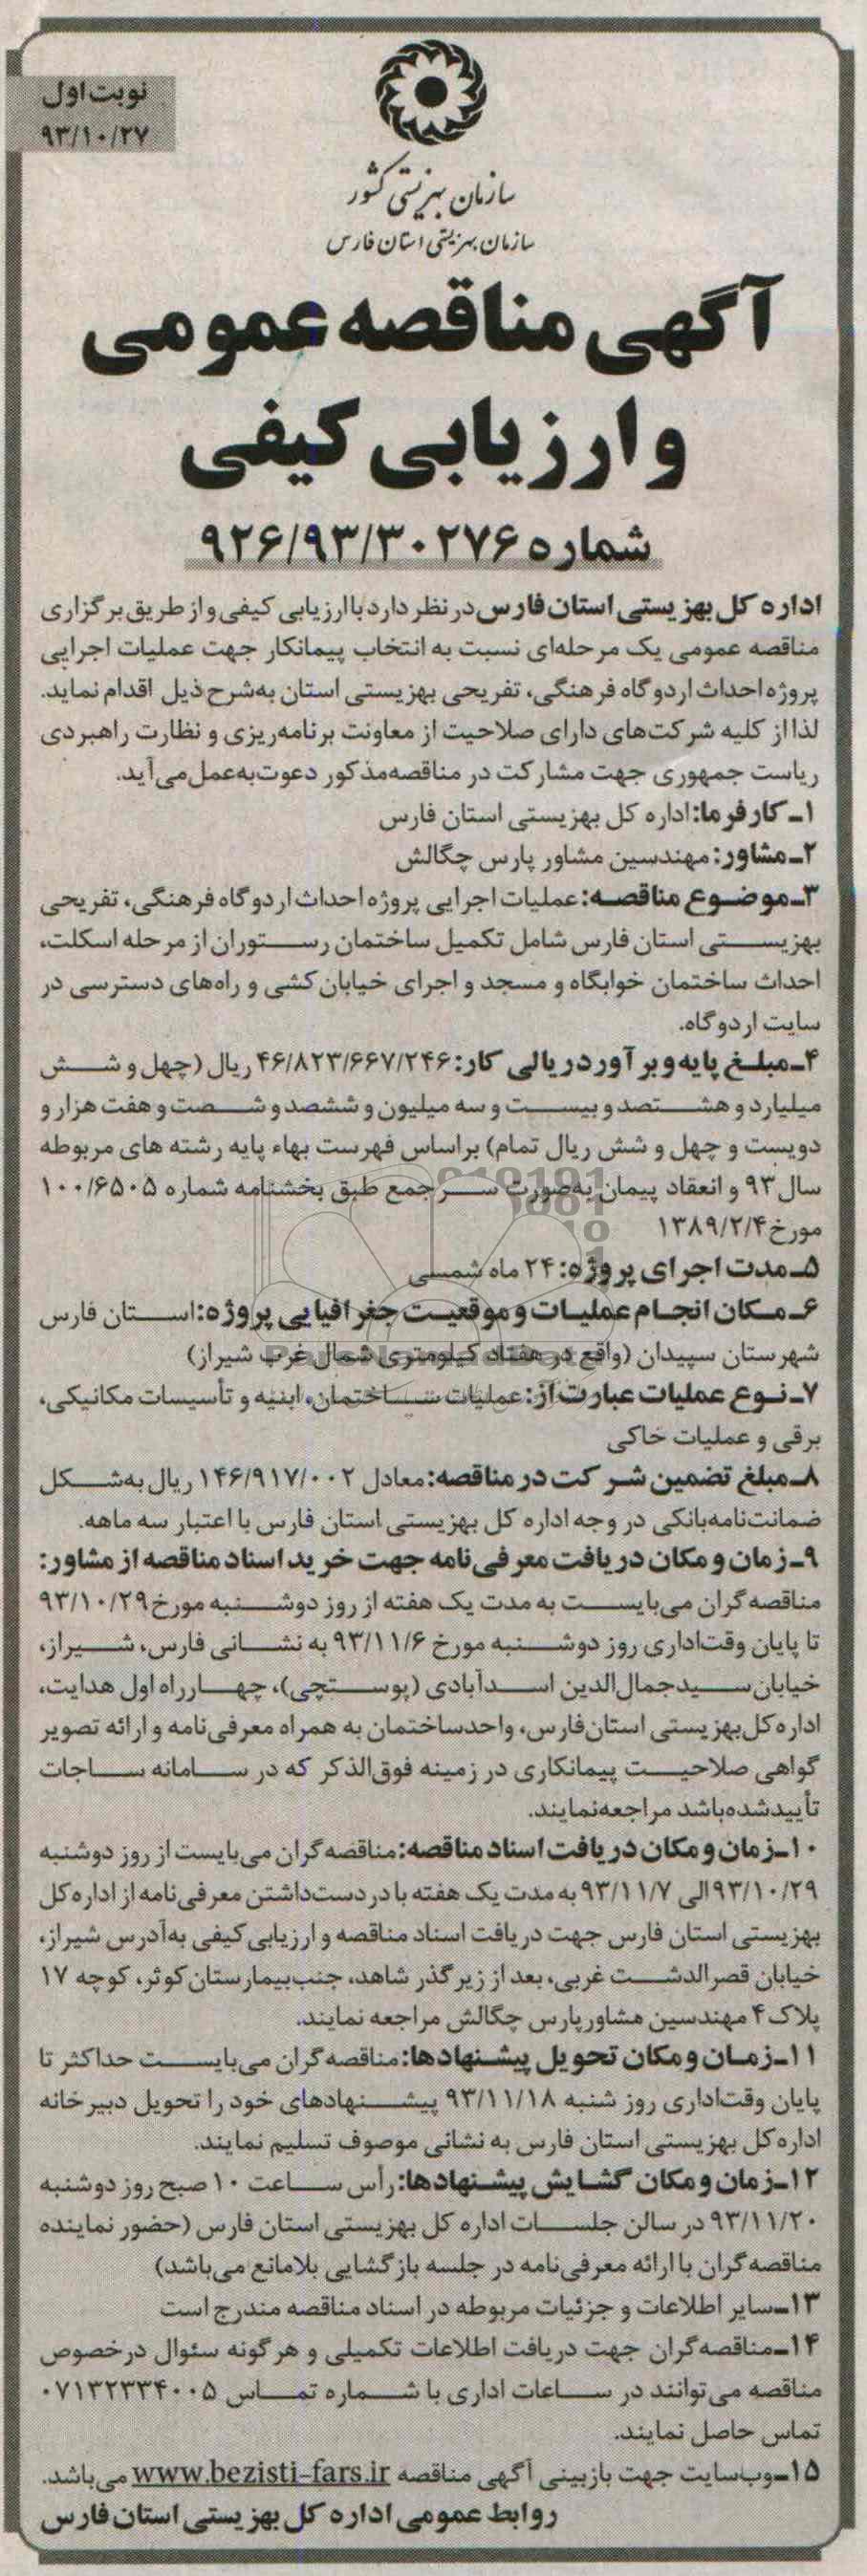 نوبت اول
۹۳/۱۰/۲۷
سازمان بهزیستی کشور
سازمان بهزیستی استان فارس
آگهی مناقصه عمومی
و ارزیابی کیفی
شماره ۹۲۶/۹۳/۳۰۲۷۶
اداره کل بهزیستی استان فارس در نظر دارد با ارزیابی کیفی و از طریق برگزاری
مناقصه عمومی یک مرحله‌ای نسبت به انتخاب پیمانکار جهت عملیات اجرایی
پروژه احداث اردوگاه فرهنگی، تفریحی بهزیستی استان به‌شرح ذیل اقدام نماید.
لذا از کلیه شرکت‌های دارای صلاحیت از معاونت برنامه‌ریزی و نظارت راهبردی
ریاست جمهوری جهت مشارکت در مناقصه‌مذکور دعوت‌به‌عمل‌می‌آید.
۱ـ کارفرما: اداره کل بهزیستی استان فارس
۲ـ مشاور: مهندسین مشاور پارس چگالش
۳ـ موضوع مناقصه: عملیات اجرایی پروژه احداث اردوگاه فرهنگی، تفریحی
بهزیستی استان فارس شامل تکمیل ساختمان رستوران از مرحله اسکلت،
احداث ساختمان خوابگاه و مسجد و اجرای خیابان کشی و راه‌های دسترسی در
سایت اردوگاه.
۴ـ مبلغ پایه و برآورد ریالی کار: ۴۶/۸۲۳/۶۶۷/۲۴۶ ریال (چهل و شش
میلیارد و هشتصد و بیست و سه میلیون و ششصد و شصت و هفت هزار و
دویست و چهل و شش ریال تمام) براساس فهرست بهاء پایه رشته های مربوطه
سال ۹۳ و انعقاد پیمان به‌صورت سرجمع طبق بخشنامه شماره ۱۰۰/۶۵۰۵
مورخ ۱۳۸۹/۲/۴
۵ـ مدت اجرای پروژه: ۲۴ ماه شمسی
۶ـ مکان انجام عملیات و موقعیت جغرافیایی پروژه: استان فارس
شهرستان سپیدان (واقع در هفتاد کیلومتری شمال غرب شیراز)
۷ـ نوع عملیات عبارت از: عملیات ساختمان، ابنیه و تأسیسات مکانیکی،
برقی و عملیات خاکی
۸ـ مبلغ تضمین شرکت در مناقصه: معادل ۱۴۶/۹۱۷/۰۰۲ ریال به‌شکل
ضمانت‌نامه‌بانکی در وجه اداره کل بهزیستی استان فارس با اعتبار سه ماهه.
۹ـ زمان و مکان دریافت معرفی‌نامه جهت خرید اسناد مناقصه از مشاور:
مناقصه گران می‌بایست به مدت یک هفته از روز دوشنبه مورخ ۹۳/۱۰/۲۹
تا پایان وقت‌اداری روز دوشنبه مورخ ۹۳/۱۱/۶ به نشانی فارس، شیراز،
خیابان سیدجمال‌الدین اسدآبادی (پوستچی)، چهارراه اول هدایت،
اداره کل بهزیستی استان فارس، واحد ساختمان به همراه معرفی‌نامه و ارائه تصویر
گواهی صلاحیت پیمانکاری در زمینه فوق‌الذکر که در سامانه ساجات
تأیید شده باشد مراجعه نمایند.
۱۰ـ زمان و مکان دریافت اسناد مناقصه: مناقصه گران می‌بایست از روز دوشنبه
۹۳/۱۰/۲۹ الی ۹۳/۱۱/۷ به مدت یک هفته با در دست داشتن معرفی‌نامه از اداره کل
بهزیستی استان فارس جهت دریافت اسناد مناقصه و ارزیابی کیفی به‌آدرس شیراز،
خیابان قصرالدشت غربی، بعد از زیرگذر شاهد، جنب بیمارستان کوثر، کوچه ۱۷
پلاک ۴ مهندسین مشاور پارس چگالش مراجعه نمایند.
۱۱ـ زمان و مکان تحویل پیشنهادها: مناقصه گران می‌بایست حداکثر تا
پایان وقت‌اداری روز شنبه ۹۳/۱۱/۱۸ پیشنهادهای خود را تحویل دبیرخانه
اداره کل بهزیستی استان فارس به نشانی موصوف تسلیم نمایند.
۱۲ـ زمان و مکان گشایش پیشنهادها: رأس ساعت ۱۰ صبح روز دوشنبه
۹۳/۱۱/۲۰ در سالن جلسات اداره کل بهزیستی استان فارس (حضور نماینده
مناقصه گران با ارائه معرفی‌نامه در جلسه بازگشایی بلامانع می‌باشد)
۱۳ـ سایر اطلاعات و جزئیات مربوطه در اسناد مناقصه مندرج است
۱۴ـ مناقصه گران جهت دریافت اطلاعات تکمیلی و هرگونه سئوال درخصوص
مناقصه می‌توانند در ساعات اداری با شماره تماس ۰۷۱۳۲۳۳۴۰۰۵
تماس حاصل نمایند.
۱۵ـ وب‌سایت جهت بازبینی آگهی مناقصه www.bezisti-fars.ir می‌باشد.
روابط عمومی اداره کل بهزیستی استان فارس